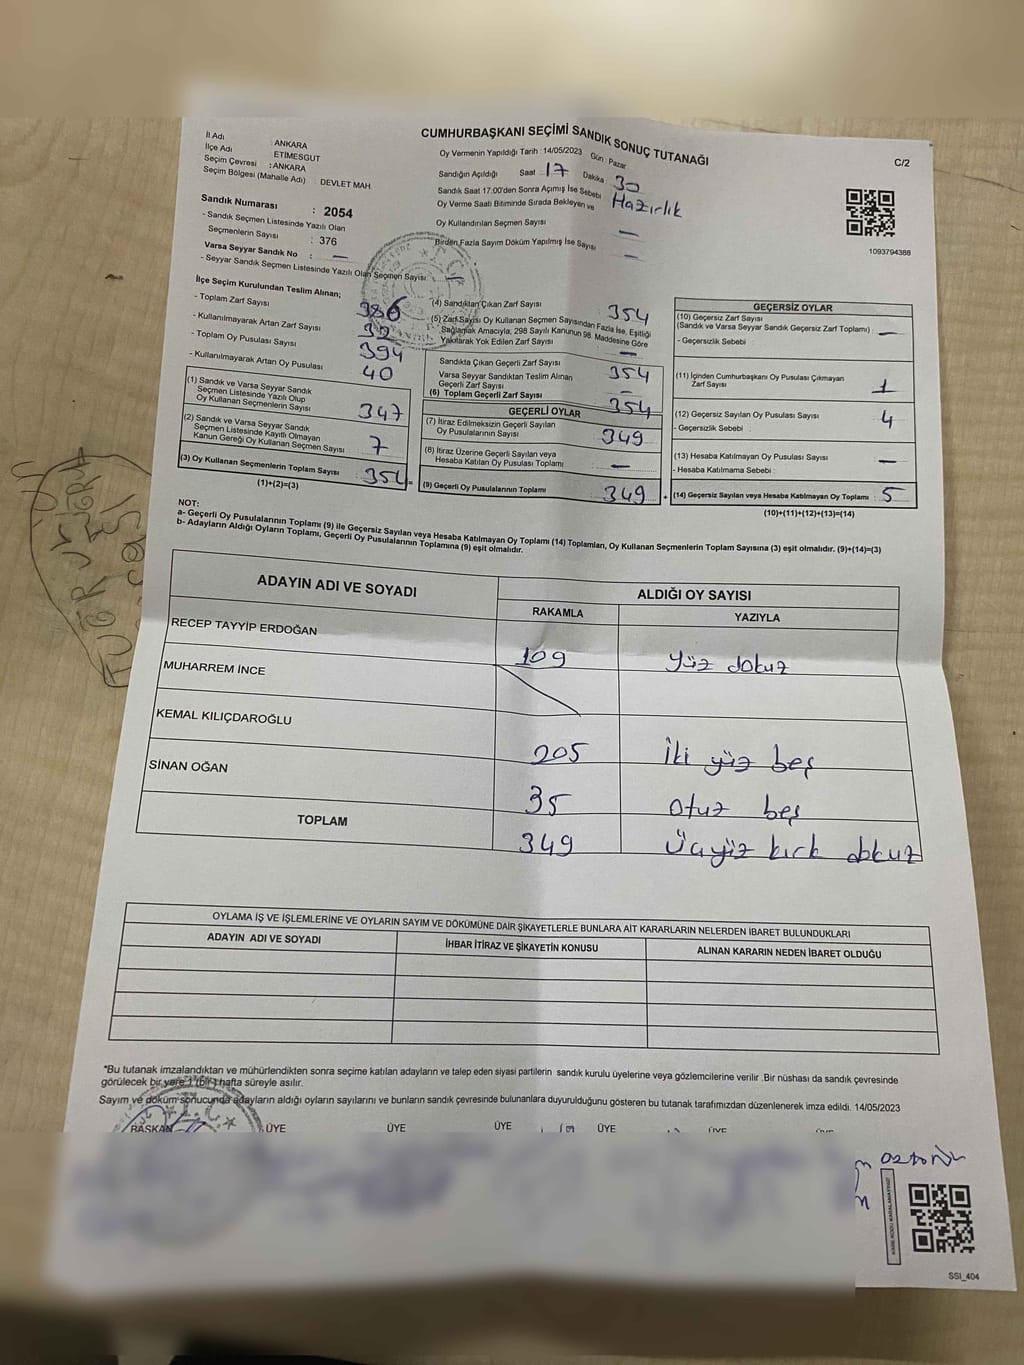 CUMHURBAŞKANI SEÇİMİ SANDIK SONUÇ TUTANAĞI
C/2
İl Adı : ANKARA
İlçe Adı : ETİMESGUT
Seçim Çevresi : ANKARA
Seçim Bölgesi (Mahalle Adı) : DEVLET MAH.
Sandık Numarası : 2054
- Sandık Seçmen Listesinde Yazılı Olan
Seçmenlerin Sayısı : 376
Varsa Seyyar Sandık No : —
- Seyyar Sandık Seçmen Listesinde Yazılı Olan Seçmen Sayısı : —
Oy Vermenin Yapıldığı Tarih : 14/05/2023 Gün : Pazar
Sandığın Açıldığı Saat 17 Dakika 30
Sandık Saat 17:00'den Sonra Açımış İse Sebebi Hazırlık
Oy Verme Saati Bitiminde Sırada Bekleyen ve
Oy Kullandırılan Seçmen Sayısı —
Birden Fazla Sayım Döküm Yapılmış İse Sayısı —
1093794388
İlçe Seçim Kurulundan Teslim Alınan;
- Toplam Zarf Sayısı 386
- Kullanılmayarak Artan Zarf Sayısı 32
- Toplam Oy Pusulası Sayısı 394
- Kullanılmayarak Artan Oy Pusulası 40
(1) Sandık ve Varsa Seyyar Sandık
Seçmen Listesinde Yazılı Olup
Oy Kullanan Seçmenlerin Sayısı 347
(2) Sandık ve Varsa Seyyar Sandık
Seçmen Listesinde Kayıtlı Olmayan
Kanun Gereği Oy Kullanan Seçmen Sayısı 7
(3) Oy Kullanan Seçmenlerin Toplam Sayısı 354
(1)+(2)=(3)
(4) Sandıktan Çıkan Zarf Sayısı 354
(5) Zarf Sayısı Oy Kullanan Seçmen Sayısından Fazla İse, Eşitliği
Sağlamak Amacıyla, 298 Sayılı Kanunun 98. Maddesine Göre
Yakılarak Yok Edilen Zarf Sayısı —
Sandıkta Çıkan Geçerli Zarf Sayısı 354
Varsa Seyyar Sandıktan Teslim Alınan
Geçerli Zarf Sayısı —
(6) Toplam Geçerli Zarf Sayısı 354
GEÇERLİ OYLAR
(7) İtiraz Edilmeksizin Geçerli Sayılan
Oy Pusulalarının Sayısı 349
(8) İtiraz Üzerine Geçerli Sayılan veya
Hesaba Katılan Oy Pusulası Toplamı —
(9) Geçerli Oy Pusulalarının Toplamı 349
GEÇERSİZ OYLAR
(10) Geçersiz Zarf Sayısı
(Sandık ve Varsa Seyyar Sandık Geçersiz Zarf Toplamı) : —
- Geçersizlik Sebebi :
(11) İçinden Cumhurbaşkanı Oy Pusulası Çıkmayan
Zarf Sayısı : 1
(12) Geçersiz Sayılan Oy Pusulası Sayısı : 4
- Geçersizlik Sebebi :
(13) Hesaba Katılmayan Oy Pusulası Sayısı : —
- Hesaba Katılmama Sebebi :
(14) Geçersiz Sayılan veya Hesaba Katılmayan Oy Toplamı : 5
(10)+(11)+(12)+(13)=(14)
NOT:
a- Geçerli Oy Pusulalarının Toplamı (9) ile Geçersiz Sayılan veya Hesaba Katılmayan Oy Toplamı (14) Toplamları, Oy Kullanan Seçmenlerin Toplam Sayısına (3) eşit olmalıdır. (9)+(14)=(3)
b- Adayların Aldığı Oyların Toplamı, Geçerli Oy Pusulalarının Toplamına (9) eşit olmalıdır.
ADAYIN ADI VE SOYADI ALDIĞI OY SAYISI
RAKAMLA YAZIYLA
RECEP TAYYİP ERDOĞAN 109 yüz dokuz
MUHARREM İNCE
KEMAL KILIÇDAROĞLU 205 İki yüz beş
SİNAN OĞAN 35 otuz beş
TOPLAM 349 Üçyüz kırk dokuz
OYLAMA İŞ VE İŞLEMLERİNE VE OYLARIN SAYIM VE DÖKÜMÜNE DAİR ŞİKAYETLERLE BUNLARA AİT KARARLARIN NELERDEN İBARET BULUNDUKLARI
ADAYIN ADI VE SOYADI İHBAR İTİRAZ VE ŞİKAYETİN KONUSU ALINAN KARARIN NEDEN İBARET OLDUĞU
*Bu tutanak imzalandıktan ve mühürlendikten sonra seçime katılan adayların ve talep eden siyasi partilerin sandık kurulu üyelerine veya gözlemcilerine verilir .Bir nüshası da sandık çevresinde
görülecek bir yere 1 (bir) hafta süreyle asılır.
Sayım ve döküm sonucunda adayların aldığı oyların sayılarını ve bunların sandık çevresinde bulunanlara duyurulduğunu gösteren bu tutanak tarafımızdan düzenlenerek imza edildi. 14/05/2023
BAŞKAN ÜYE ÜYE ÜYE ÜYE ÜYE
SSI_404